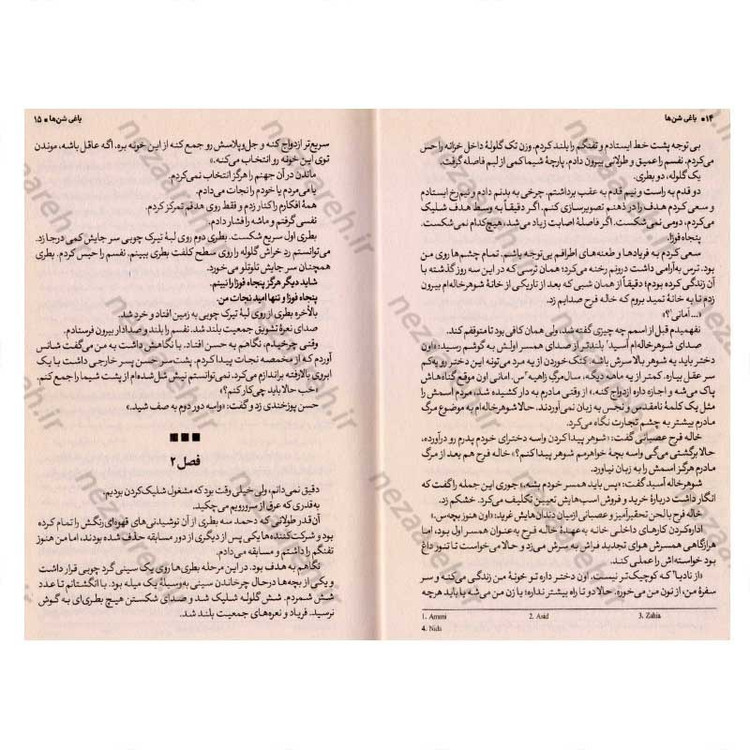 ۱۴ ■ یاغی شن‌ها
بی توجه پشت خط ایستادم و تفنگم را بلند کردم. وزن تک گلولهٔ داخل خزانه را حس
می‌کردم. نفسم را عمیق و طولانی بیرون دادم. پارچهٔ شیما کمی از لبم فاصله گرفت.
یک گلوله، دو بطری.
دو قدم به راست و نیم قدم به عقب برداشتم. چرخی به بدنم دادم و نیم رخ ایستادم
و سعی کردم هدف را در ذهنم تصویرسازی کنم. اگر دقیقاً به وسط هدف شلیک
می‌کردم، دومی نمی‌شکست. اگر فاصلهٔ اصابت زیاد می‌شد، هیچ‌کدام نمی‌شکست.
پنجاه فوزا.
سعی کردم به فریادها و طعنه‌های اطرافم بی‌توجه باشم. تمام چشم‌ها روی من
بود. ترس به‌آرامی داشت درونم رخنه می‌کرد؛ همان ترسی که در این سه روز گذشته با
آن زندگی کرده بودم؛ دقیقاً از همان شبی که بعد از تاریکی از خانهٔ شوهر خاله‌ام بیرون
زدم تا به خانهٔ تمید بروم که خاله فرح صدایم زد.
«...آمانی؟»
نفهمیدم قبل از اسمم چه چیزی گفته شد، ولی همان کافی بود تا متوقفم کند.
صدای شوهرخاله‌ام اَسید بلندتر از صدای همسر اولش به گوشم رسید: «اون
دختر باید یه شوهر بالا سرش باشه. کتک خوردن از یه مرد می‌تونه این دختر رو یه‌کم
سر عقل بیاره. کمتر از یه ماهه دیگه، سال مرگ زاهیه س. امانی اون موقع گناه‌هاش
پاک می‌شه و اجازه داره ازدواج کنه.» از وقتی مادرم به دار کشیده شد، مردم اسمش را
مثل یک کلمهٔ نامقدس و نجس به زبان نمی‌آوردند. حالا شوهرخاله‌ام به موضوع مرگ
مادرم بیشتر به چشم تجارت نگاه می‌کرد.
خاله فرح عصبانی گفت: «شوهر پیدا کردن واسه دخترای خودم پدرم رو درآورده،
حالا برگشتی می‌گی واسه بچهٔ خواهرمم شوهر پیدا کنم؟» خاله فرح هم بعد از مرگ
مادرم هرگز اسمش را به زبان نیاورد.
شوهرخاله اَسید گفت: «پس باید همسر خودم بشه.» جوری این جمله را گفت که
انگار داشت دربارهٔ خرید و فروش اسب‌هایش تعیین تکلیف می‌کرد. خشکم زد.
خاله فرح با لحن تحقیرآمیز و عصبانی از میان دندان‌هایش غرید: «اون هنوز بچه‌س.»
اداره کردن کارهای داخلی خانه به‌عهدهٔ خاله فرح به‌عنوان همسر اول بود، اما
هرازگاهی همسرش هوای تجدید فراش به سرش می‌زد و حالا می‌خواست تا تنور داغ
بود خواسته‌اش را عملی کند.
«از نادیا که کوچیک‌تر نیست. اون دختر داره تو خونهٔ من زندگی می‌کنه و سر
سفرهٔ من، از نون من می‌خوره. حالا دو تا راه بیشتر نداره؛ یا زن من می‌شه یا باید هرچه
1. Amani
2. Asid
3. Zahia
یاغی شن‌ها ■ ۱۵
سریع‌تر ازدواج کنه و جل‌وپلاسش رو جمع کنه از این خونه بره. اگه عاقل باشه، موندن
توی این خونه رو انتخاب می‌کنه.»
ماندن در آن جهنم را هرگز انتخاب نمی‌کردم.
یا می‌مردم یا خودم را نجات می‌دادم.
همهٔ افکارم را کنار زدم و فقط روی هدفم تمرکز کردم.
نفسی گرفتم و ماشه را فشار دادم.
بطری اول سریع شکست. بطری دوم روی لبهٔ تیرک چوبی سر جایش کمی درجا زد.
می‌توانستم رد خراش گلوله را روی سطح کلفت بطری ببینم. نفسم را حبس کردم. بطری
همچنان سر جایش تلوتلو می‌خورد.
شاید دیگر هرگز پنجاه فوزا را نبینم.
پنجاه فوزا و تنها امید نجات من.
بالأخره بطری از روی لبهٔ تیرک چوبی به زمین افتاد و خرد شد.
صدای نعرهٔ تشویق جمعیت بلند شد. نفسم را بلند و صدادار بیرون فرستادم.
وقتی چرخیدم، نگاهم به حسن افتاد. با نگاهش داشت به من می‌گفت شانس
آوردم که از مخمصه نجات پیدا کردم. پشت سر حسن پسر خارجی داشت با یک
ابروی بالارفته براندازم می‌کرد. نمی‌توانستم نیش شل‌شده‌ام از پشت شیما را جمع کنم.
«خب حالا باید چی‌کار کنم؟»
حسن پوزخندی زد و گفت: «واسه دور دوم به صف شید.»
■ ■ ■
فصل ۲
دقیق نمی‌دانم، ولی خیلی وقت بود که مشغول شلیک کردن بودیم.
به‌قدری که عرق از سرورویم می‌چکید.
آن‌قدر طولانی که دحمد سه بطری از آن نوشیدنی‌های قهوه‌ای‌رنگش را تمام کرده
بود و شرکت‌کننده‌ها یکی پس از دیگری از دور مسابقه حذف شده بودند، اما من هنوز
تفنگم را داشتم و مسابقه می‌دادم.
نگاهم به هدف بود. در این مرحله بطری‌ها روی یک سینی گرد چوبی قرار داشت
و یکی از بچه‌ها درحال چرخاندن سینی به‌وسیلهٔ یک میله بود. با انگشتانم تا عدد
شش شمردم. شش گلوله شلیک شد و صدای شکستن هیچ بطری‌ای به گوش
نرسید. فریاد و نعره‌های جمعیت بلند شد.
nezaareh.ir